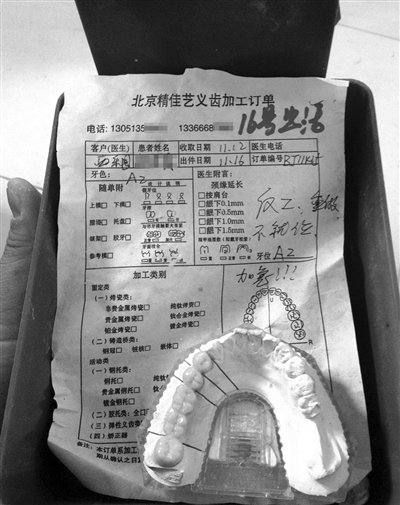 北京精佳艺义齿加工订单
电话: 1305135 1336668
16号生活
客户(医生) 患者姓名 收取日期 11.12 医生电话
出件日期 11.16 订单编号
牙色: A2
医生附言:
随单附 设计说明
颈缘延长
□按肩台
□龈下0.1mm
□龈下0.5mm
□龈下1.0mm
□龈下1.5mm
上模□ 下模□
蜡堤□ 托盘□
颌架□ 胶牙□
参考模□
反工,重做
不就位!
牙位 A2
加急!!!
加工类别
固定类
(一)烤瓷类
非贵金属烤瓷□
贵金属烤瓷□ 钛合金烤瓷□
铂金烤瓷□ 镀金烤瓷□
(二)铸造桩类
钢冠□ 桩核□ 嵌体□
活动类
(一)钢托类
钢托□
贵金属钢托□
镀金钢托□
(二)胶托类:全口
(三)弹性义齿
(四)矫正器
备注:本订单系加工
期从确认之日
R